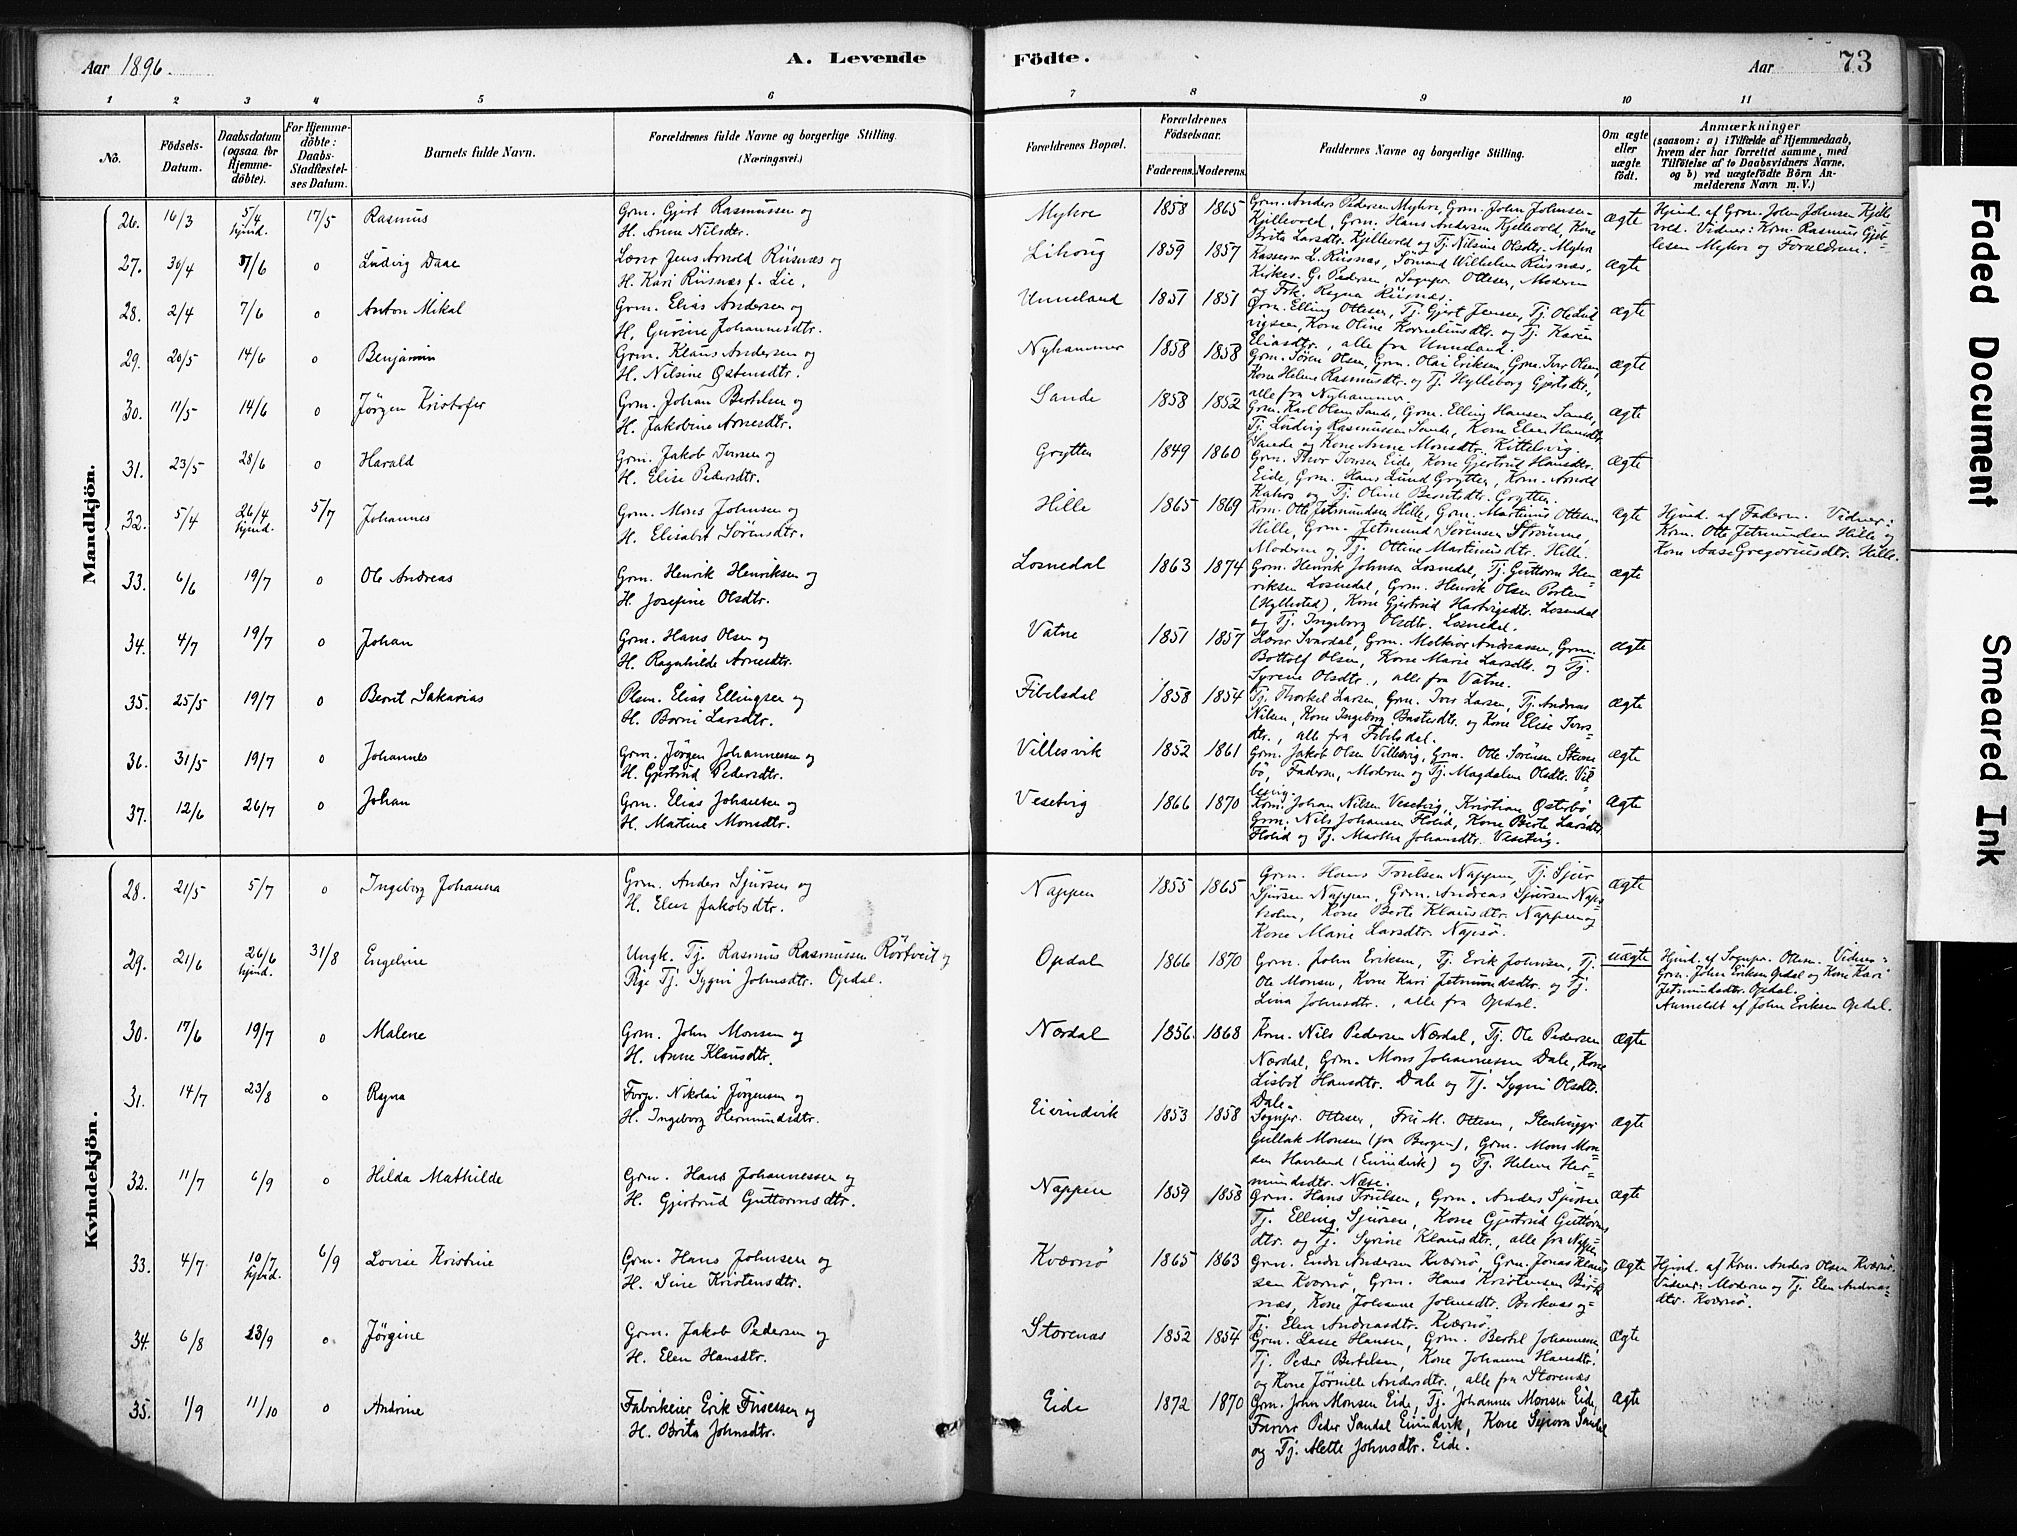 Aar 1896.
A. Levende
Födte.
Aar
73
1 2 3 4 5 6 7 8 9 10 11
No.
Födsels-Datum.
Daabsdatum (ogsaa for Hjemme-döbte).
For Hjemme-döbte: Daabs-Stadfæstelses Datum.
Barnets fulde Navn.
Forældrenes fulde Navne og borgerlige Stilling. (Næringsvei.)
Forældrenes Bopæl.
Forældrenes Födselsaar.
Faderens. Moderens.
Faddernes Navne og borgerlige Stilling.
Om ægte eller uægte födt.
Anmærkninger
(saasom: a) i Tilfælde af Hjemmedaab,
hvem der har forrettet samme, med
Tilföielse af to Daabsvidners Navne,
og b) ved uægtefödte Börn An-
melderens Navn m. V.)
Mandkjön.
26. 16/3 5/4 hjmd. 17/5 Rasmus
Grm. Gjert Rasmussen og
H. Anne Nilsdtr.
Myhre 1858 1865
Grm. Anders Pedersen Myhre, Grm. John Johnsen
Kjillevold, Grm. Hans Andersen Kjellevold, Kone
Brita Larsdtr. Kjillevold og Tj. Nilsine Olsdtr. Myhre
ægte
Hjmd. af Grm. John Johnsen Kjelle-
vold. Vidner: Krm. Rasmus Gjert-
Myhre og Forældrene.
27. 30/4 7/6 o Ludvig Daae
Lærer Jens Arnold Riisnæs og
H. Kari Riisnæs f. Lie.
1859 1857
Kasserer L. Riisnæs, Sömand Wilhelm Riisnæs,
Kirkes. G. Pedersen, Sognpr. Ottesen, Moderen
og Frk. Regna Riisnæs.
ægte
28. 2/4 7/6 o Anton Mikal
Grm. Elias Andersen og
H. Gurine Johannesdtr.
Unneland 1851 1851
Grm. Elling Ottesen, Tj. Gjert Jensen, Tj. Ole Lud
vigsen, Kone Oline Korneliusdtr. og Tj. Karen
Eliasdtr., alle fra Unneland.
ægte
29. 20/5 14/6 o Benjamin
Grm. Klaus Andersen og
H. Nilsine Østensdtr.
Nyhammer 1858 1858
Grm. Sören Olsen, Grm. Olai Eriksen, Grm. Iver Olsen,
Kone Helene Rasmusdtr. og Tj. Hylleborg Gjertsdtr.,
alle fra Nyhammer.
ægte
30. 11/5 14/6 o Jörgen Kristofer
Grm. Johan Bertelsen og
H. Jakobine Arnesdtr.
Sande 1858 1852
Grm. Karl Olsen Sande, Grm. Elling Hansen Sande,
Tj. Ludvig Rasmussen Sande, Kone Elen Hansdtr.
Sande og Kone Anne Monsdtr. Kittelsvig.
ægte
31. 23/5 28/6 o Harald
Grm. Jakob Iversen og
H. Elise Pedersdtr.
Grytten 1849 1860
Grm. Thor Iversen Eide, Kone Gjertrud Hansdtr.
Eide, Grm. Hans Lund Grytten, Krm. Arnold
og Tj. Oline Berntsdtr. Grytten.
ægte
32. 5/4 26/4 hjmd. 5/7 Johannes
Grm. Mons Johnsen og
H. Elisabet Sörensdtr.
Hille 1865 1869
Krm. Otte Jetmundsen Hille, Grm. Martinus Ottesen
Hille, Grm. Jetmund Sörensen Strömme,
Moderen og Tj. Ottine Martinusdtr. Hille.
ægte
Hjmd. af Faderen. Vidner:
Krm. Otte Jetmundsen Hille og
Kone Aase Gregoriusdtr. Hille.
33. 6/6 19/7 o Ole Andreas
Grm. Henrik Henriksen og
H. Josefine Olsdtr.
Losnedal 1863 1874
Grm. Henrik Johnsen Losnedal, Tj. Guttorm Hen-
riksen Losnedal, Grm. Henrik Olsen Porten
(Hyllestad), Kone Gjertrud Hartvigsdtr. Losnedal
og Tj. Ingeborg Olsdtr. Losnedal.
ægte
34. 4/7 19/7 o Johan
Grm. Hans Olsen og
H. Ragnhilde Arnesdtr.
Vatne 1851 1857
Lærer Svardal, Grm. Melkior Andreassen, Grm.
Bottolf Olsen, Kone Marie Larsdtr. og Tj.
Syrene Olsdtr., alle fra Vatne.
ægte
35. 25/5 19/7 o Bernt Sakarias
Plsm. Elias Ellingsen og
H. Borni Larsdtr.
Fibelsdal 1858 1854
Tj. Thorkel Larsen, Grm. Iver Larsen, Tj. Andreas
Nilsen, Kone Ingeborg og Kone Elise Ivers
dtr., alle fra Fibelsdal.
ægte
36. 31/5 19/7 o Johannes
Grm. Jörgen Johannessen og
H. Gjertrud Pedersdtr.
Villesvik 1852 1861
Grm. Jakob Olsen Villesvig, Grm. Otte Sörensen
bö, Faderen, Moderen og Tj. Magdalene Olsdtr. Vil-
lesvig.
ægte
37. 12/6 26/7 o Johan
Grm. Elias Johansen og
H. Martine Monsdtr.
Vesetvig 1866 1870
Krm. Johan Nilsen Vesetvig, Kristian Østerbö
Grm. Nils Johansen Flolid, Kone Berte Larsdtr.
Flolid og Tj. Martha Johansdtr. Vesetvig.
ægte
Kvindekjön.
28. 21/5 5/7 o Ingeborg Johanna
Grm. Anders Sjursen og
H. Elen Jakobsdtr.
Nappen 1855 1865
Grm. Hans Trulsen Nappen, Tj. Sjur
Sjursen Nappen, Grm. Andreas Sjursen Naps-
holm, Kone Berte Klausdtr. Nappen og
Kone Marie Larsdtr. Napsö.
ægte
29. 21/6 26/6 hjmd. 31/8 Engeline
Ungk. Tj. Rasmus Rasmussen Rörtveit og
Pige Tj. Sygni Johnsdtr. Opdal.
Opdal 1866 1870
Grm. John Eriksen, Tj. Erik Johnsen, Tj.
Ole Monsen, Kone Kari Jetmundsdtr. og Tj.
Lina Johnsdtr., alle fra Opdal.
uægte
Hjmd. af Sognpr. Ottesen. Vidner:
Grm. John Eriksen Opdal og Kone Kari
Jetmundsdtr. Opdal.
Anmeldt af John Eriksen Opdal.
30. 17/6 19/7 o Malene
Grm. John Monsen og
H. Anne Klausdtr.
Nordal 1856 1868
Krm. Nils Pedersen Nærdal, Tj. Ole Pedersen
Nærdal, Grm. Mons Johannessen Dale, Kone
Lisbet Hansdtr. Dale og Tj. Sygni Olsdtr.
Dale.
ægte
31. 14/7 23/8 o Regna
Forp. Nikolai Jörgensen og
H. Ingeborg Hermundsdtr.
Eivindvik 1853 1858
Sognpr. Ottesen, Fru M. Ottesen, Stenhugger
Gullak Monsen (fra Bergen), Grm. Mons Mon-
sen Haveland (Evindvik) og Tj. Helene Her-
mundsdtr. Næse.
ægte
32. 11/7 6/9 o Hilda Mathilde
Grm. Hans Johannessen og
H. Gjertrud Guttormsdtr.
Nappen 1859 1858
Grm. Hans Trulsen, Grm. Anders Sjursen,
Tj. Elling Sjursen, Kone Gjertrud Guttorms
dtr. og Tj. Syrine Klausdtr., alle fra Nappen
ægte
33. 4/7 10/7 hjmd. 6/9 Lovise Kristine
Grm. Hans Johnsen og
H. Sine Kristensdtr.
Kværnö 1865 1863
Grm. Endre Andersen Kværnö, Grm. Jonas Klaus
sen Kværnö, Grm. Hans Kristensen Birk-
næs, Kone Johanne Johnsdtr. Birknæs og
Tj. Elen Andreasdtr. Kværnö.
ægte
Hjmd. af Krm. Anders Olsen Kværnö.
Vidner: Moderen og Tj. Elen Andreas-
dtr. Kværnö.
34. 6/8 13/9 o Jörgine
Grm. Jakob Pedersen og
H. Elen Hansdtr.
Storenæs 1852 1854
Grm. Lasse Hansen, Grm. Bertel Johannesen,
Tj. Peder Bertelsen, Kone Johanne Hansdtr.
og Kone Jörnille Andersdtr., alle fra Storenæs
ægte
35. 1/9 11/10 o Andrine
Fabrikeier Erik og
H. Brita Johnsdtr.
Eide 1872 1870
Grm. John Monsen Eide, Tj. Johannes Monsen Eide,
Farver Peder Sandal Evindvik, Kone Sandal
og Tj. Alette Johnsdtr. Eide.
ægte
Faded Document
Smeared Ink